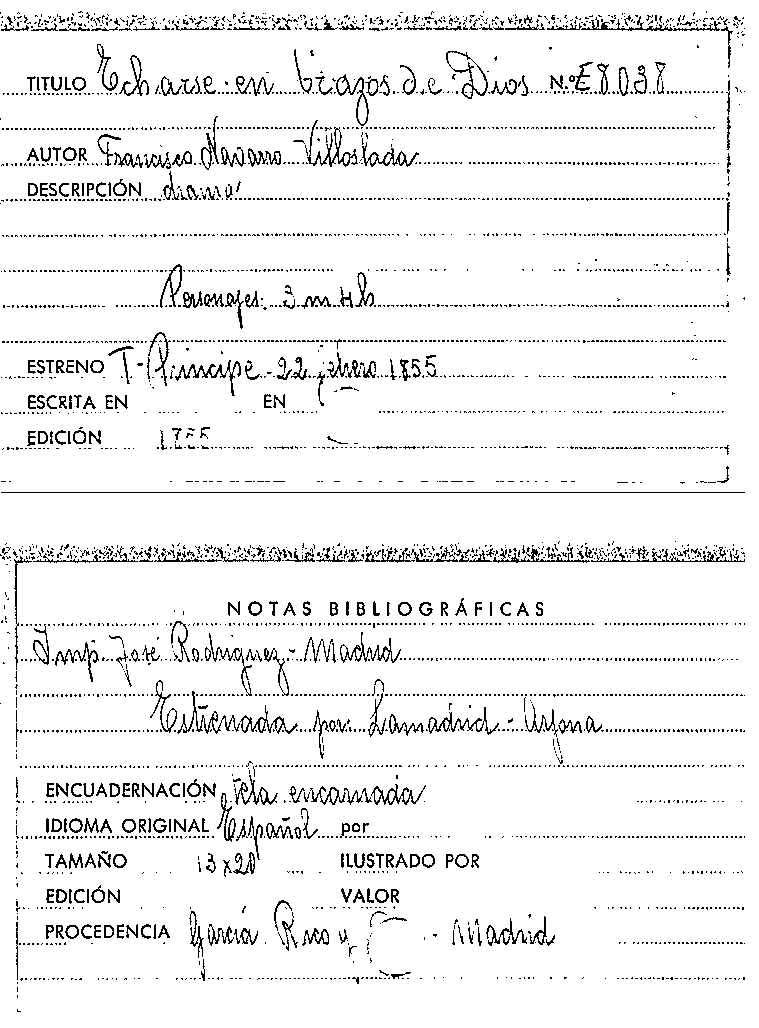 TITULO Echarse en brazos de Dios N.º E8038
AUTOR Francisco Navarro Villoslada
DESCRIPCIÓN drama
Personajes: 3 m 4 h
ESTRENO T. Principe - 22 febrero 1855
ESCRITA EN EN
EDICIÓN 1855
NOTAS BIBLIOGRÁFICAS
Imp. José Rodriguez - Madrid
Estrenada por: Lamadrid - Arjona
ENCUADERNACIÓN tela encarnada
IDIOMA ORIGINAL Español por
TAMAÑO 13x20 ILUSTRADO POR
EDICIÓN VALOR
PROCEDENCIA García Rico y C - Madrid